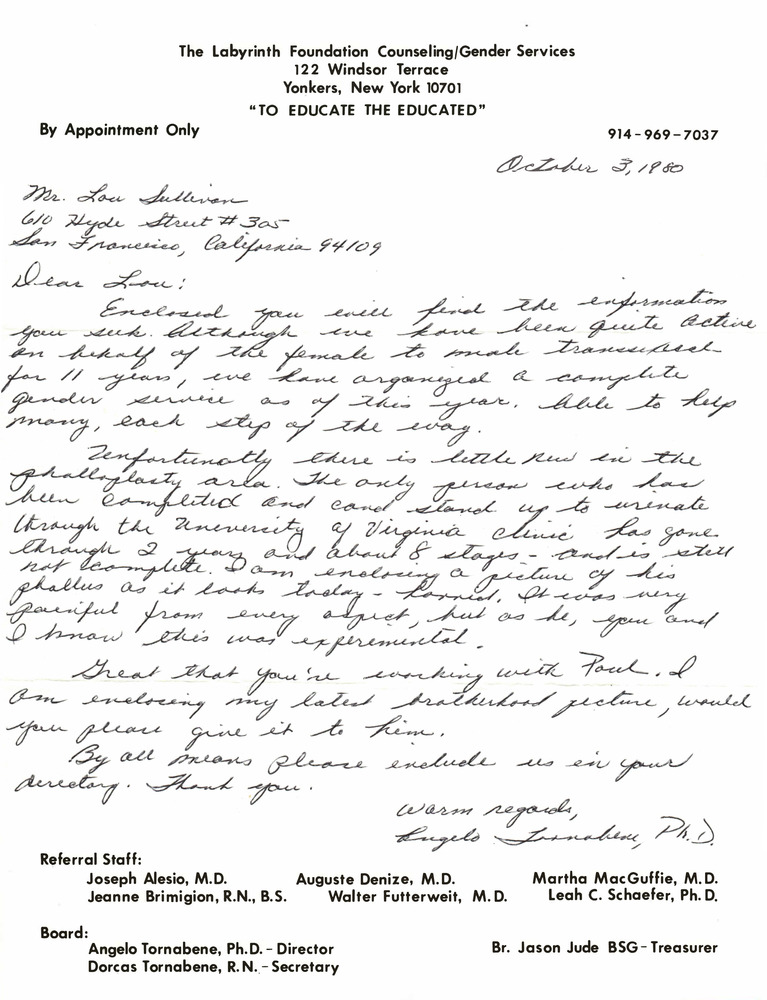 The Labyrinth Foundation Counseling/Gender Services
122 Windsor Terrace
Yonkers, New York 10701
"TO EDUCATE THE EDUCATED"
By Appointment Only
914-969-7037
October 3, 1980
Mr. Lou Sullivan
610 Hyde Street # 305
San Francisco, California 94109
Dear Lou:
Enclosed you will find the information
you seek. Although we have been quite active
on behalf of the female to male transsexual
for 11 years, we have organized a complete
gender service as of this year. Able to help
many, each step of the way.
Unfortunatly there is little new in the
phalloplasty area. The only person who has
been completed and cand stand up to urinate
through the University of Virginia clinic has gone
through 2 years and about 8 stages - and is still
not complete. I am enclosing a picture of his
phallus as it looks today - horrid. It was very
painful from every aspect, but as he, you and
I know this was experimental.
Great that you're working with Paul. I
am enclosing my latest brotherhood picture, would
you please give it to him.
By all means please include us in your
directory. Thank you.
Warm regards,
Angelo Tornabene, Ph.D.
Referral Staff:
Joseph Alesio, M.D. Auguste Denize, M.D. Martha MacGuffie, M.D.
Jeanne Brimigion, R.N., B.S. Walter Futterweit, M.D. Leah C. Schaefer, Ph.D.
Board:
Angelo Tornabene, Ph.D. - Director Br. Jason Jude BSG - Treasurer
Dorcas Tornabene, R.N. - Secretary